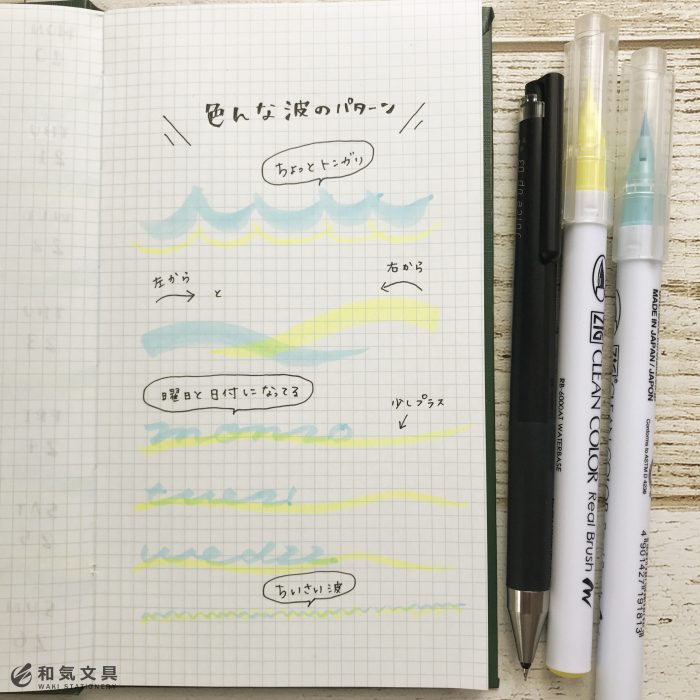 色んな波のパターン
ちょっとトンガリ
左から
と
右から
曜日と日付になってる
少しプラス
mon20
tues21
wed22
ちいさい波
和気文具
WAKI STATIONERY
Juice up 03
ZIG CLEAN COLOR Real Brush
RB-6000AT WATERBASE
ZIG CLEAN COLOR
MADE IN JAPAN/JAPON
Conforms to ASTM D 4236
4 901427 191813